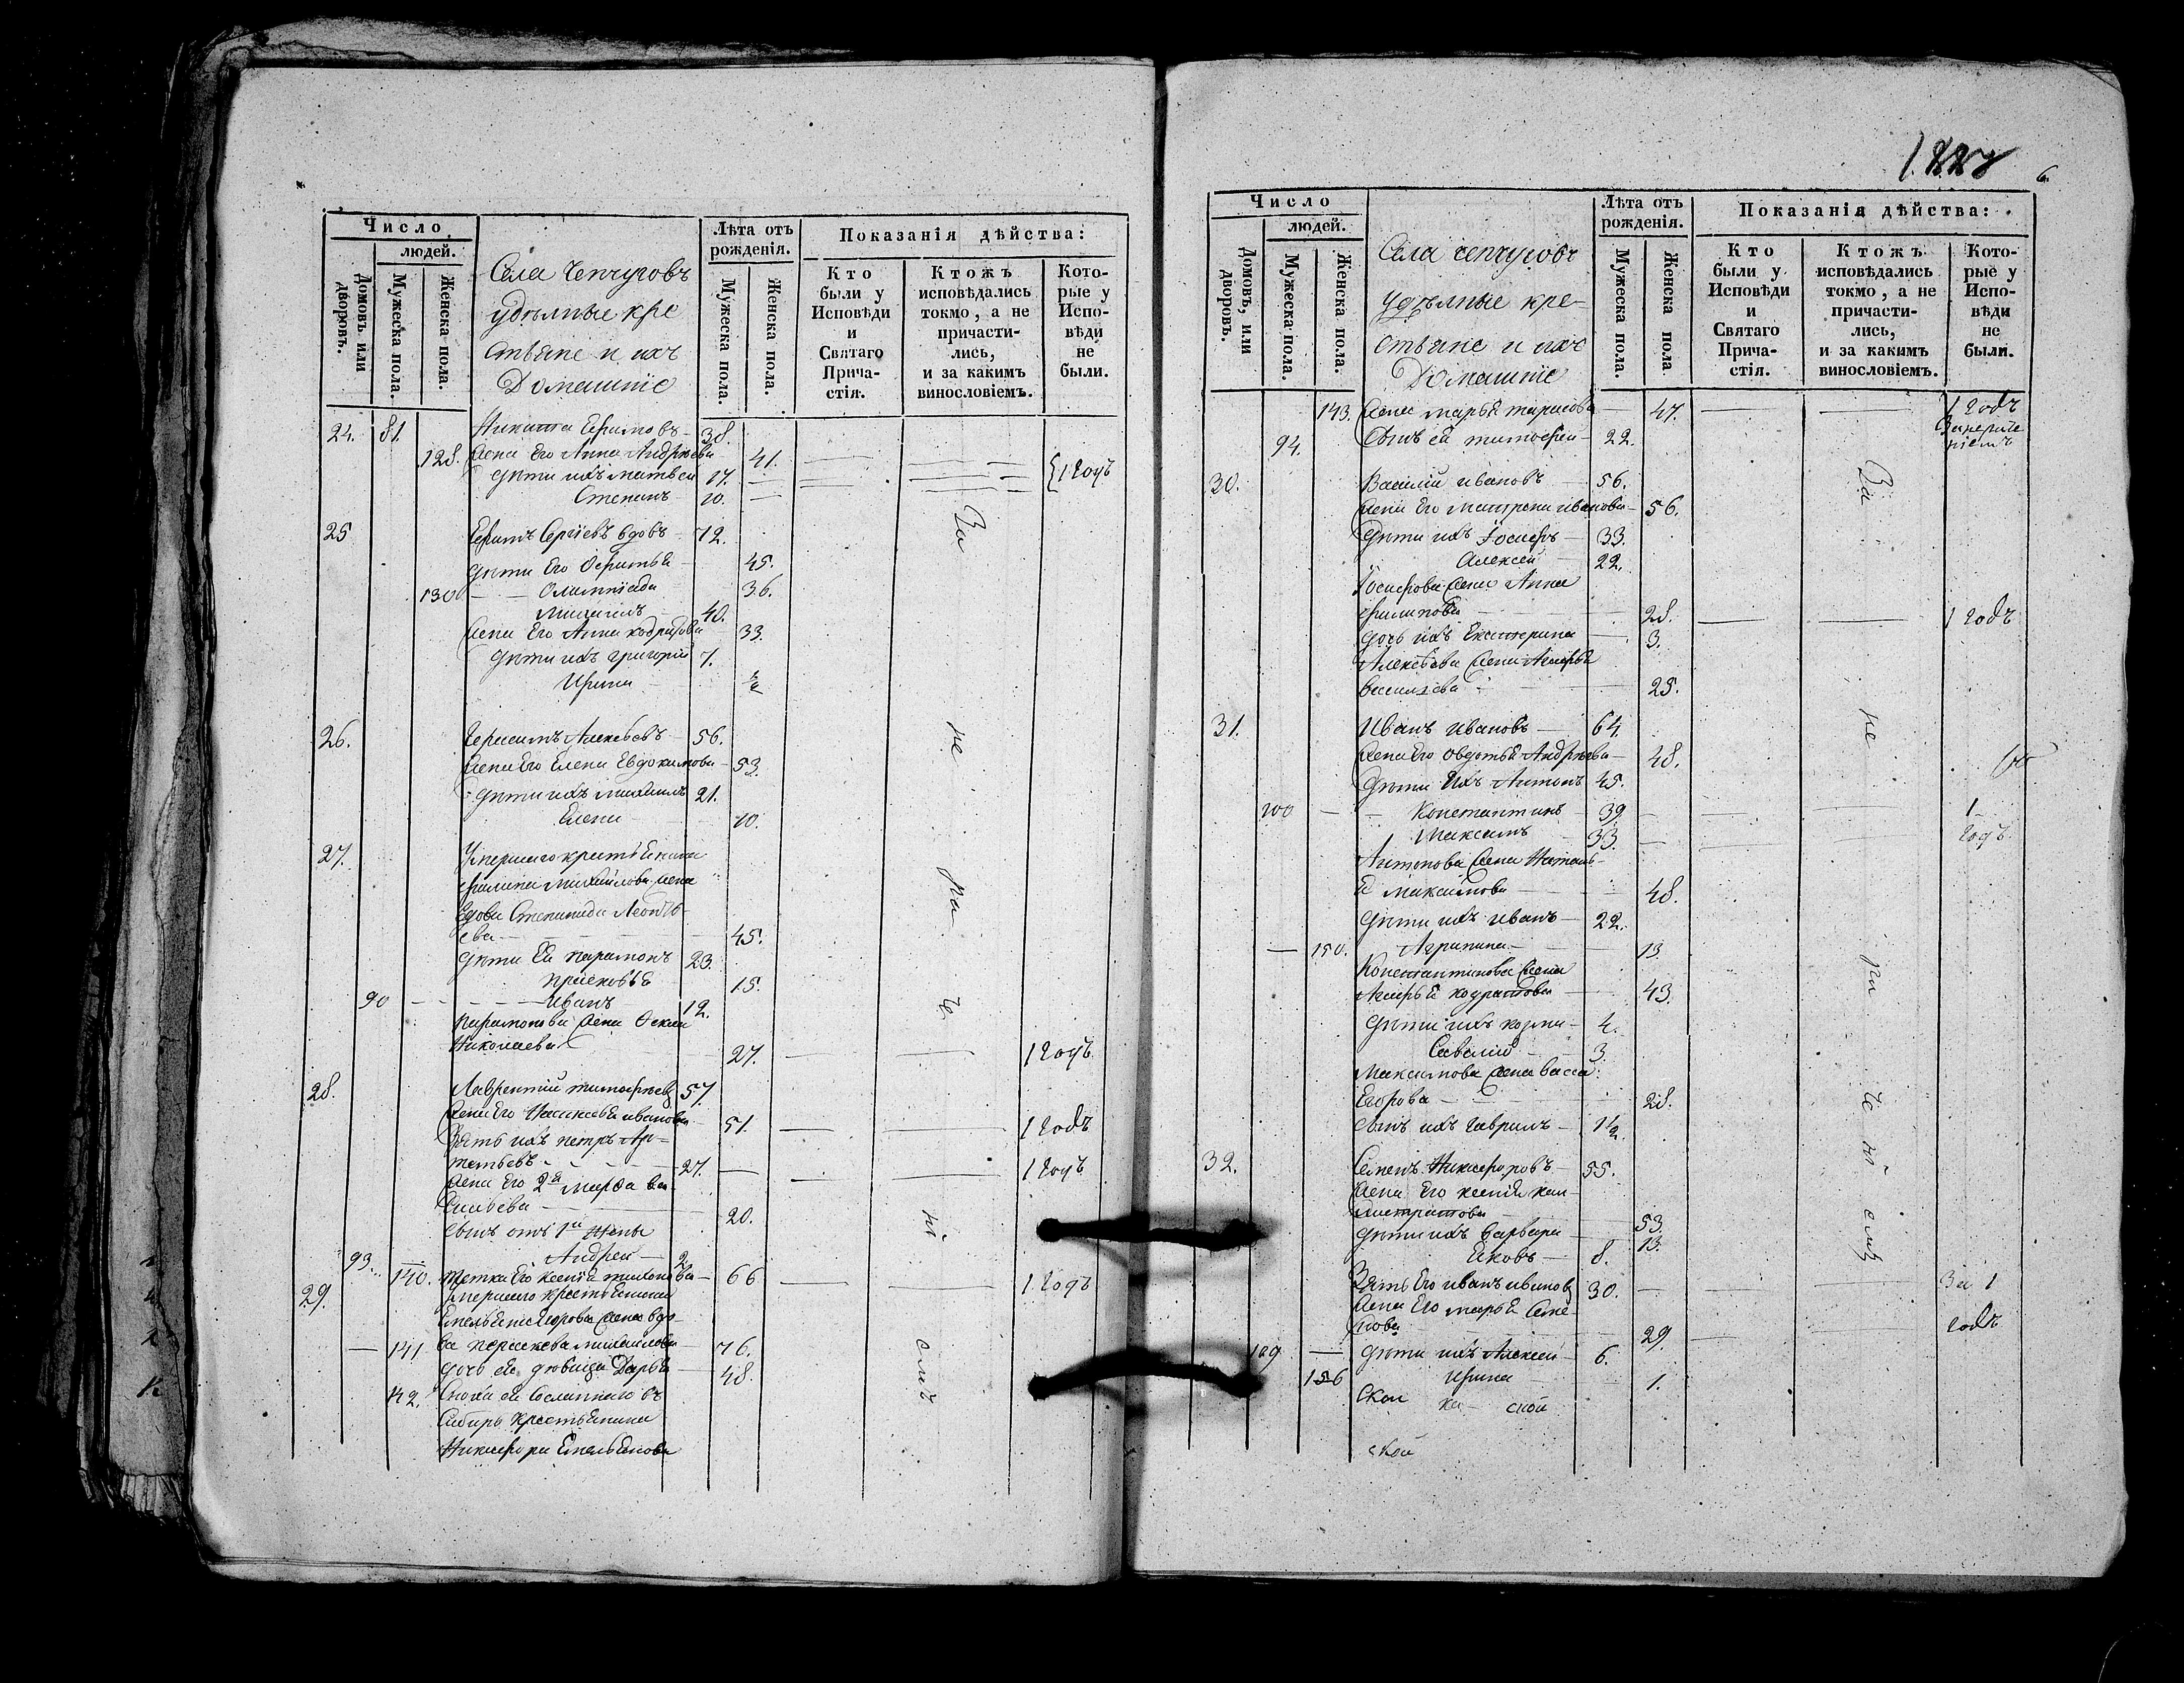 Число
людей.
Домовъ или дворовъ.
Мужеска пола.
Женска пола.
Села Чепчуговъ
удѣлные кре
стьяне и ихъ
Домашніе
Лѣта отъ
рожденія.
Мужеска пола.
Женска пола.
Показанія дѣйства:
Кто
были у
Исповѣди
и
Святаго
Прича-
стія.
Ктожъ
исповѣдались
токмо, а не
причасти-
лись,
и за какимъ
винословіемъ.
Кото-
рые у
Испо-
вѣди
не
были.
24. 81. Никита Ефимовъ 38.
128. жена Его Анна Андрѣева 41.
дѣти ихъ матвеи 17. 1 годъ
Степанъ 10.
25 Ефимъ Сергіевъ вдовъ 72.
дѣти Его 45.
130 Олимпіада 36.
Михаилъ 40.
жена Его Анна кодратова 33.
дѣти ихъ григорій 7.
Ирина
26. Герасимъ Алексѣевъ 56.
жена Его Елена Евдокимова 53.
дѣти ихъ михаилъ 21.
Елена 10.
27. Умершаго крестьянина
филипа михайлова жена
вдова Степанида Леонть-
ева 45.
дѣти Ея парамонъ 23.
прасковья 15.
90 Иванъ 12.
парамонова жена
Николаева 27. 1 годъ
28. Лаврентій тимофѣевъ 57.
жена Его Настасья иванова 51. 1 годъ
Зять ихъ петръ Ар-
темьевъ 27. 1 годъ
жена Его 2я марѳа ва-
сильева 20.
сынъ отъ 1й жены
93. Андреи 2
140. тетка Его ксенія тихонова 66 1 годъ
29. Умершаго крестьянина
Емельяна Егорова жена вдо-
141 ва параскева михайлова 76.
дочь ея дѣвица Дарья 48.
142. Сноха ея сосланнаго въ
Сибирь крестьянина
Никифора Емельянова
За не ра че ні емъ
6
Число
людей.
Домовъ, или дворовъ.
Мужеска пола.
Женска пола.
Села чепчуговъ
удѣлные кре-
стьяне и ихъ
Домашніе
Лѣта отъ
рожденія.
Мужеска пола.
Женска пола
Показанія дѣйства:
Кто
были у
Исповѣди
и
Святаго
Прича-
стія.
Ктожъ
исповѣдались
токмо, а не
причасти-
лись,
и за какимъ
винословіемъ.
Кото-
рые у
Испо-
вѣди
не
были.
143. жена марья тарасова 47. 1 годъ
94. сынъ ея тимофеи 22.
30. Василій ивановъ 56.
жена Его матрена иванова 56.
дѣти ихъ Іосифъ 33.
Алексеи 22.
Іосифова жена Анна
филипова 28. 1 годъ
дочь ихъ Екатерина 3.
Алексѣева жена
васильева 25.
31. Иванъ ивановъ 64.
жена Его овдотья Андрѣева 48.
дѣти ихъ Антонъ 45.
100 Константинъ 39. 1
Максимъ 33. годъ
Антонова жена Наталь-
я максимова 48.
дѣти ихъ иванъ 22.
150. Агрипина 13
Константинова жена
кодратова 43.
дѣти ихъ козма 4.
Савелій 3.
Максимова жена васса
Егорова 28.
сынъ ихъ гаврилъ 1/2.
32. Семенъ Никифоровъ 55.
жена Его ксенія кали-
стратова 53.
дѣти ихъ варвара 13.
Яковъ 8.
Зять Его иванъ ивановъ 30. За 1
жена Его марья Семе-
нова 29. годъ
109 дѣти ихъ Алексеи 6.
156 Ирина 1.
За не ра че ні емъ